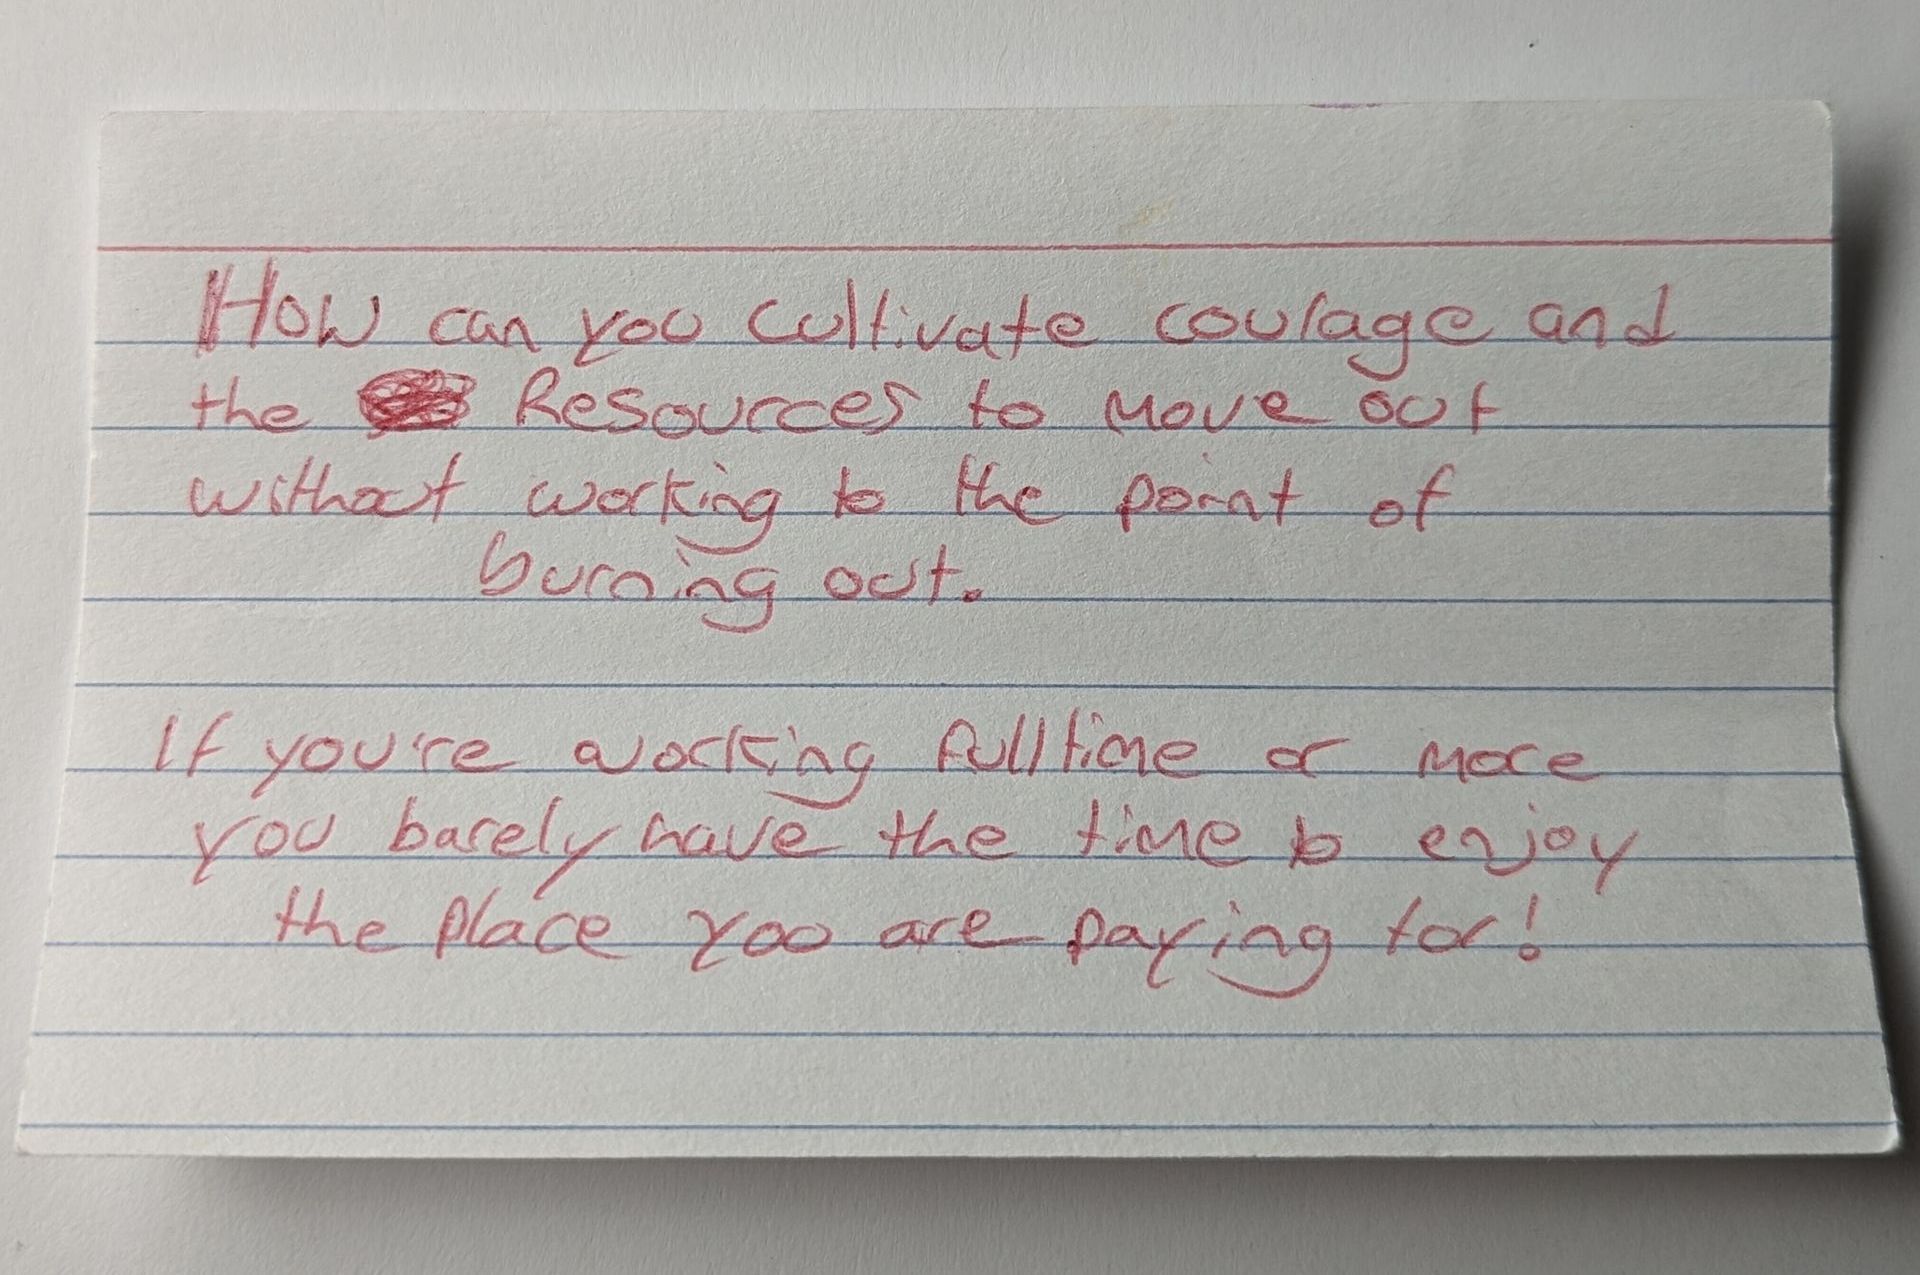 How can you cultivate courage and
the Resources to move out
without working to the point of
burning out.
If you're working fulltime or more
you barely have the time to enjoy
the place you are paying for!